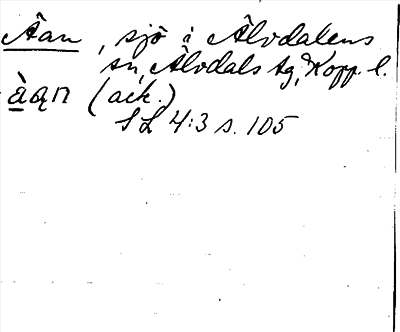 Åan, sjö i Älvdalens
sn, Älvdals tg, Kopp. l.
àąn (ack.)
SL 4:3 s. 105